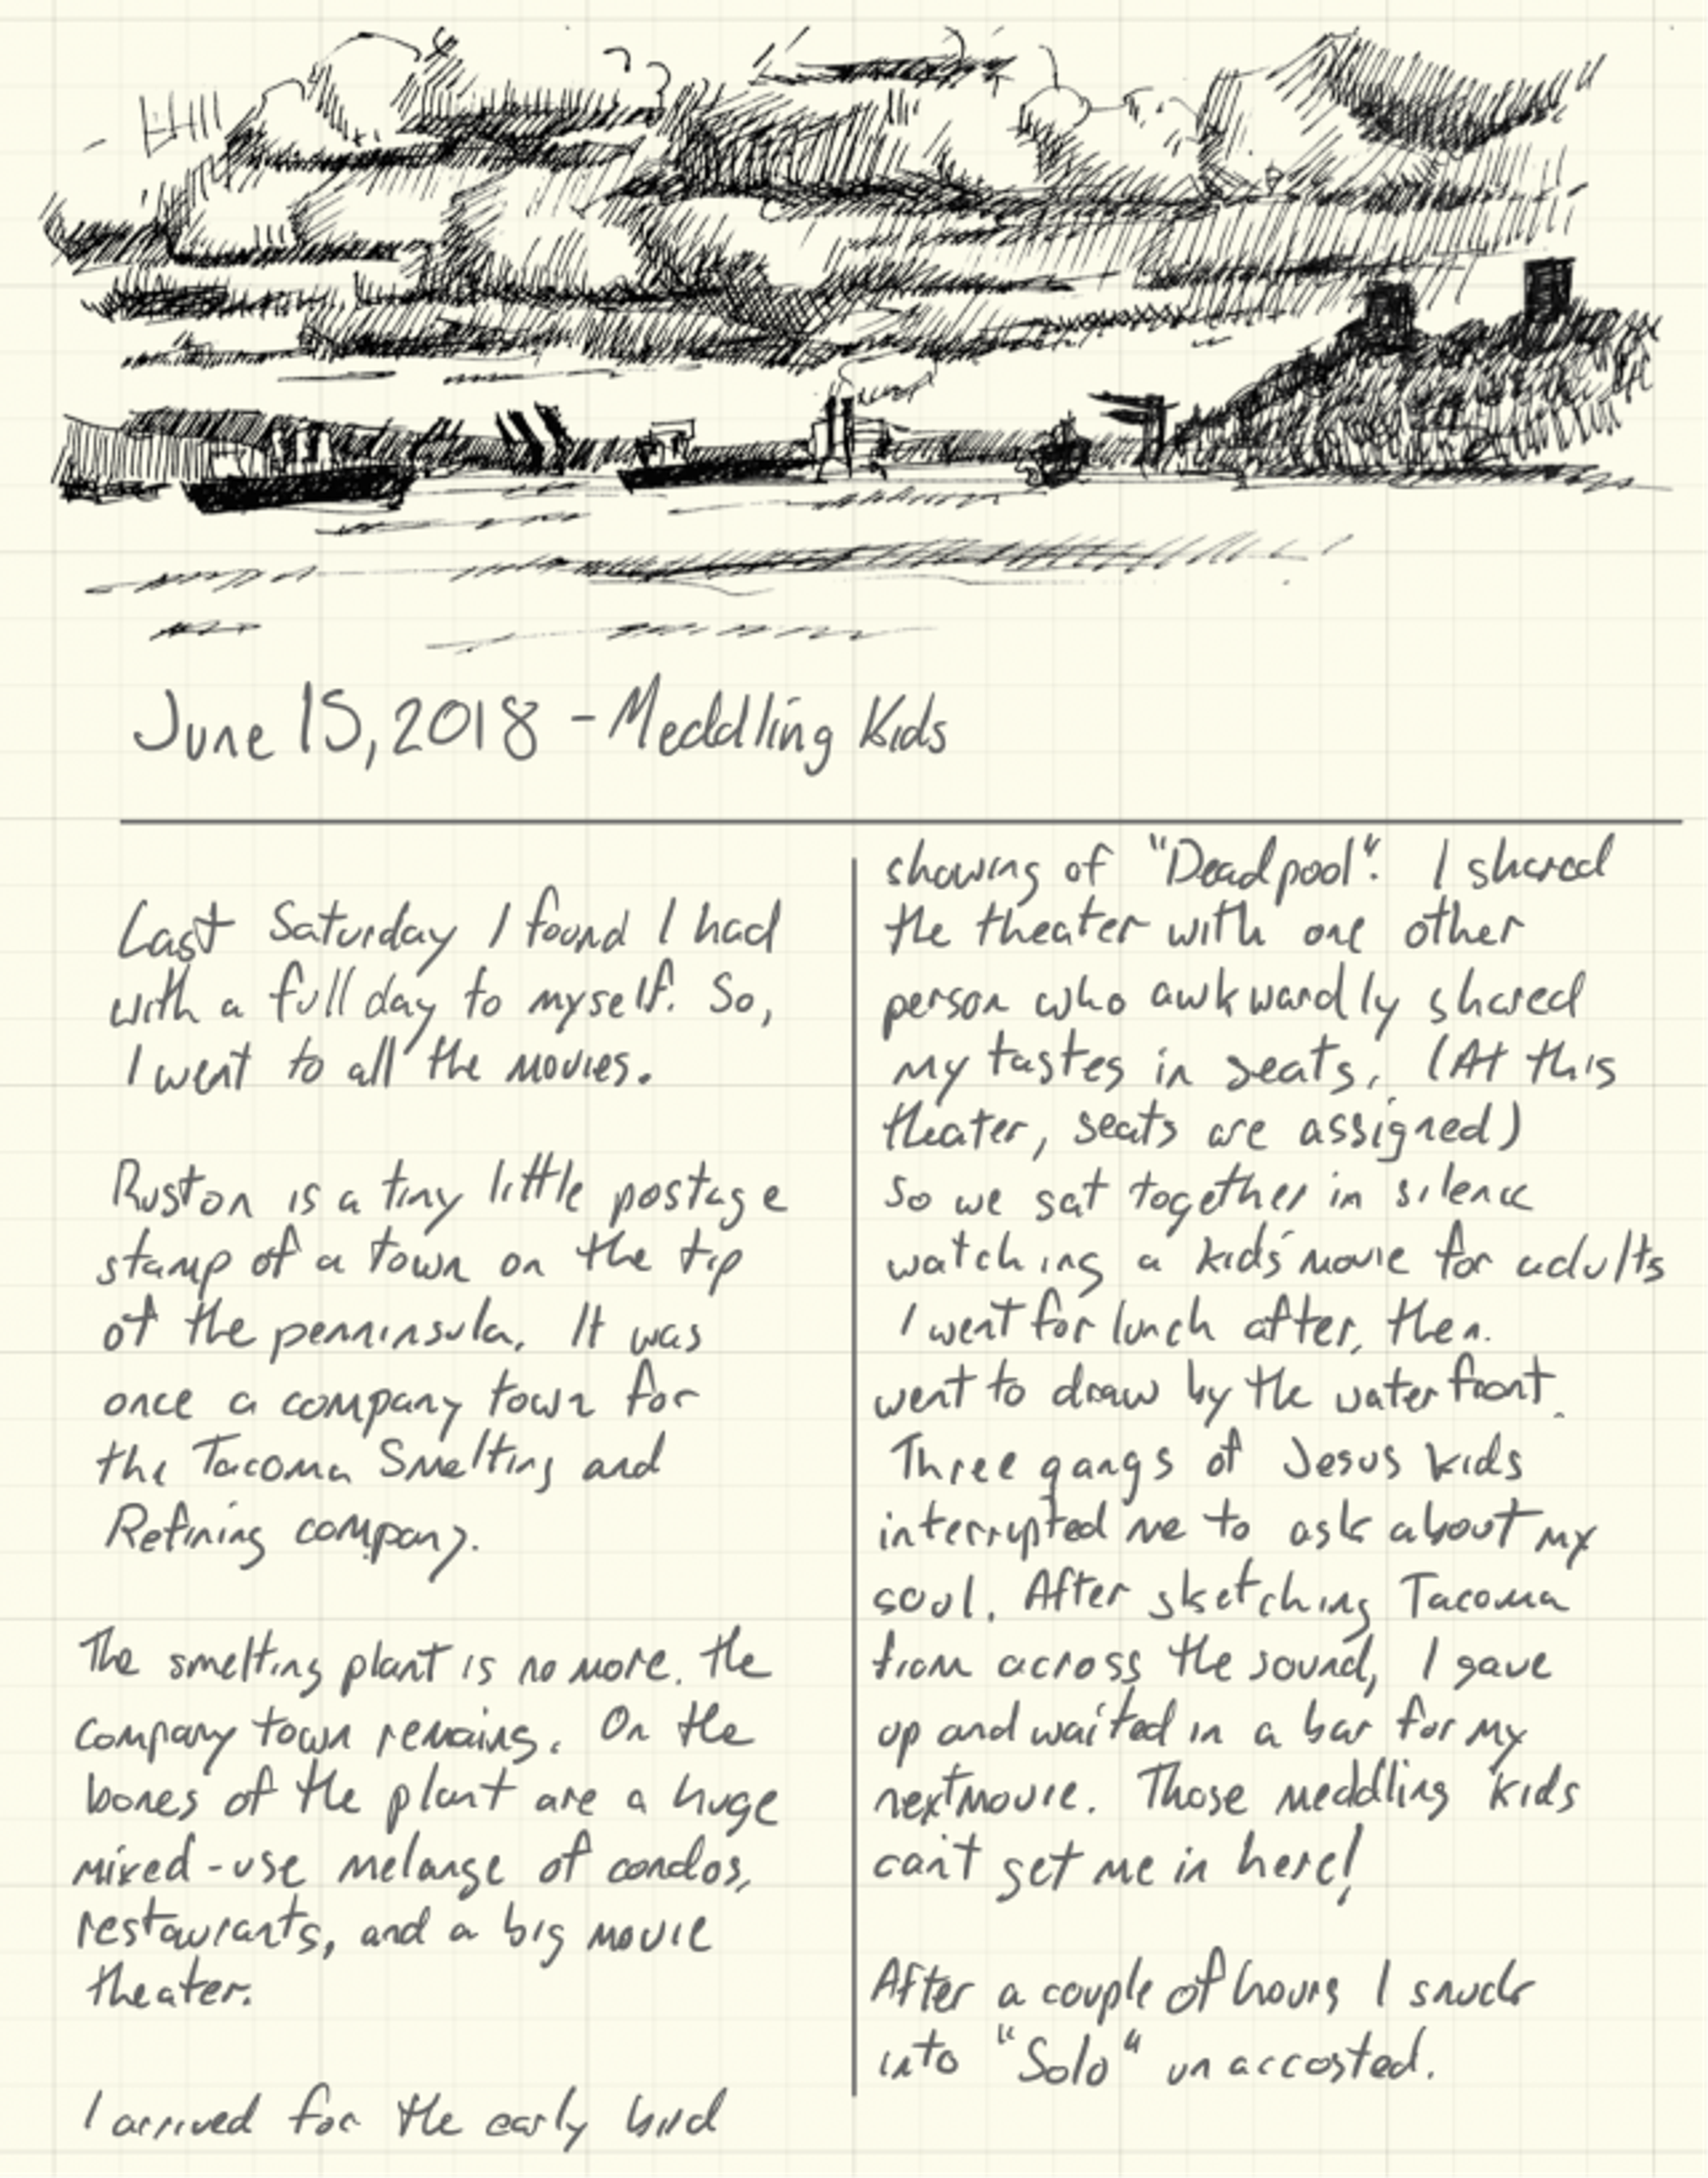 June 15, 2018 - Meddling Kids
Last Saturday I found I had
with a full day to myself. So,
I went to all the movies.
Ruston is a tiny little postage
stamp of a town on the tip
of the penninsula. It was
once a company town for
the Tacoma Smelting and
Refining company.
The smelting plant is no more. the
company town remains. On the
bones of the plant are a huge
mixed-use melange of condos,
restaurants, and a big movie
theater.
I arrived for the early bird
showing of "Deadpool". I shared
the theater with one other
person who awkwardly shared
my tastes in seats. (At this
theater, seats are assigned)
so we sat together in silence
watching a kids' movie for adults
I went for lunch after, then.
went to draw by the waterfront.
Three gangs of Jesus kids
interrupted me to ask about my
soul. After sketching Tacoma
from across the sound, I gave
up and waited in a bar for my
next movie. Those meddling kids
can't get me in here!
After a couple of hours I snuck
into "Solo" unaccosted.